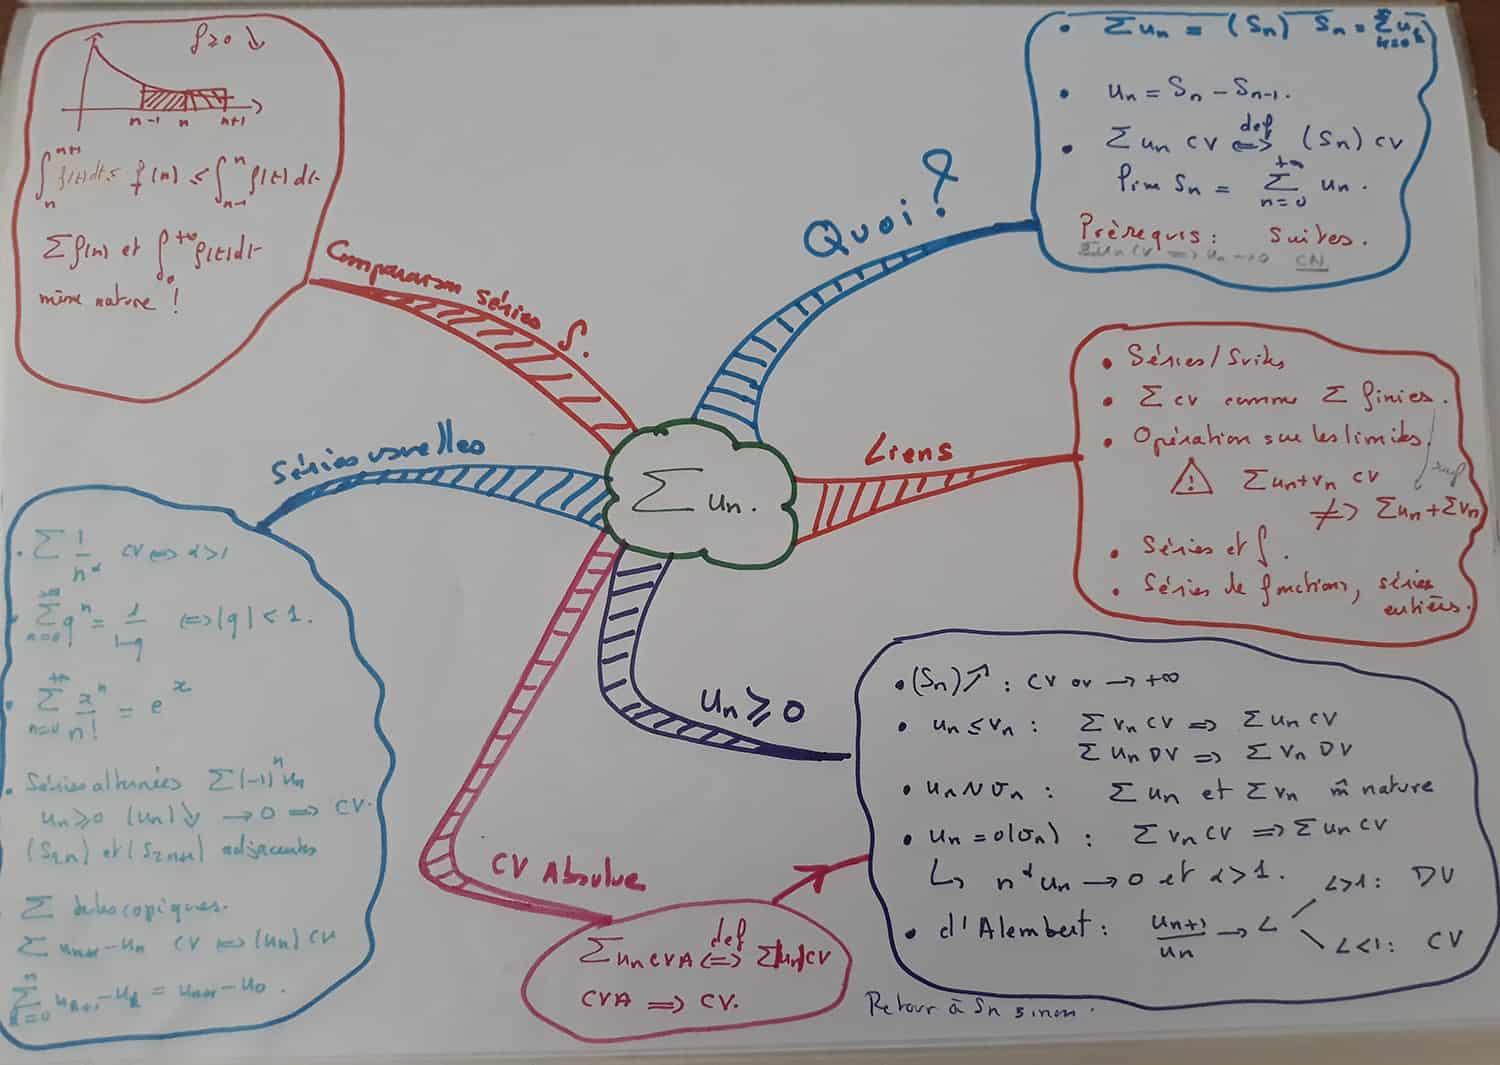 ∑ un.
Quoi ?
• ∑ un = (Sn) Sn = ∑_{k=0}^{n} uk
• un = Sn - Sn-1.
• ∑ un CV ⟺ def (Sn) CV
lim Sn = ∑_{n=0}^{+∞} un.
Prérequis : Suites.
∑un CV ⟹ un → 0 CN
Liens
• Séries/Suites
• ∑ CV comme ∑ finies.
• Opération sur les limites.
⚠ ∑ un+vn CV
⇏ ∑un + ∑vn
• Séries et ∫.
• Séries de fonctions, séries
entières.
un ⩾ 0
• (Sn) ↗ : CV ou → +∞
• un ≤ vn : ∑ vn CV ⟹ ∑ un CV
∑ un DV ⟹ ∑ vn DV
• un ~ vn : ∑ un et ∑ vn m̂ nature
• un = o(vn) : ∑ vn CV ⟹ ∑ un CV
↳ n^α un → 0 et α > 1.
• d'Alembert : un+1/un → L
L>1 : DV
L<1 : CV
Retour à Sn sinon.
CV Absolue
∑ un CVA ⟺ def ∑|un| CV
CVA ⟹ CV.
Séries usuelles
• ∑ 1/n^α CV ⟺ α>1
• ∑_{n=0}^{+∞} q^n = 1/(1-q) ⟺ |q| < 1.
• ∑_{n=0}^{+∞} x^n/n! = e^x
• Séries alternées ∑(-1)^n un
un ⩾ 0 (un) ↘ → 0 ⟹ CV.
(S2n) et (S2n+1) adjacentes
∑ télescopiques.
∑ un+1 - un CV ⟺ (un) CV
∑_{k=0}^{n} uk+1 - uk = un+1 - u0.
Comparaison Séries ∫.
f ⩾ 0 ↘
n-1 n n+1
∫_n^{n+1} f(t)dt ≤ f(n) ≤ ∫_{n-1}^{n} f(t) dt
∑ f(n) et ∫_0^{+∞} f(t)dt
même nature !